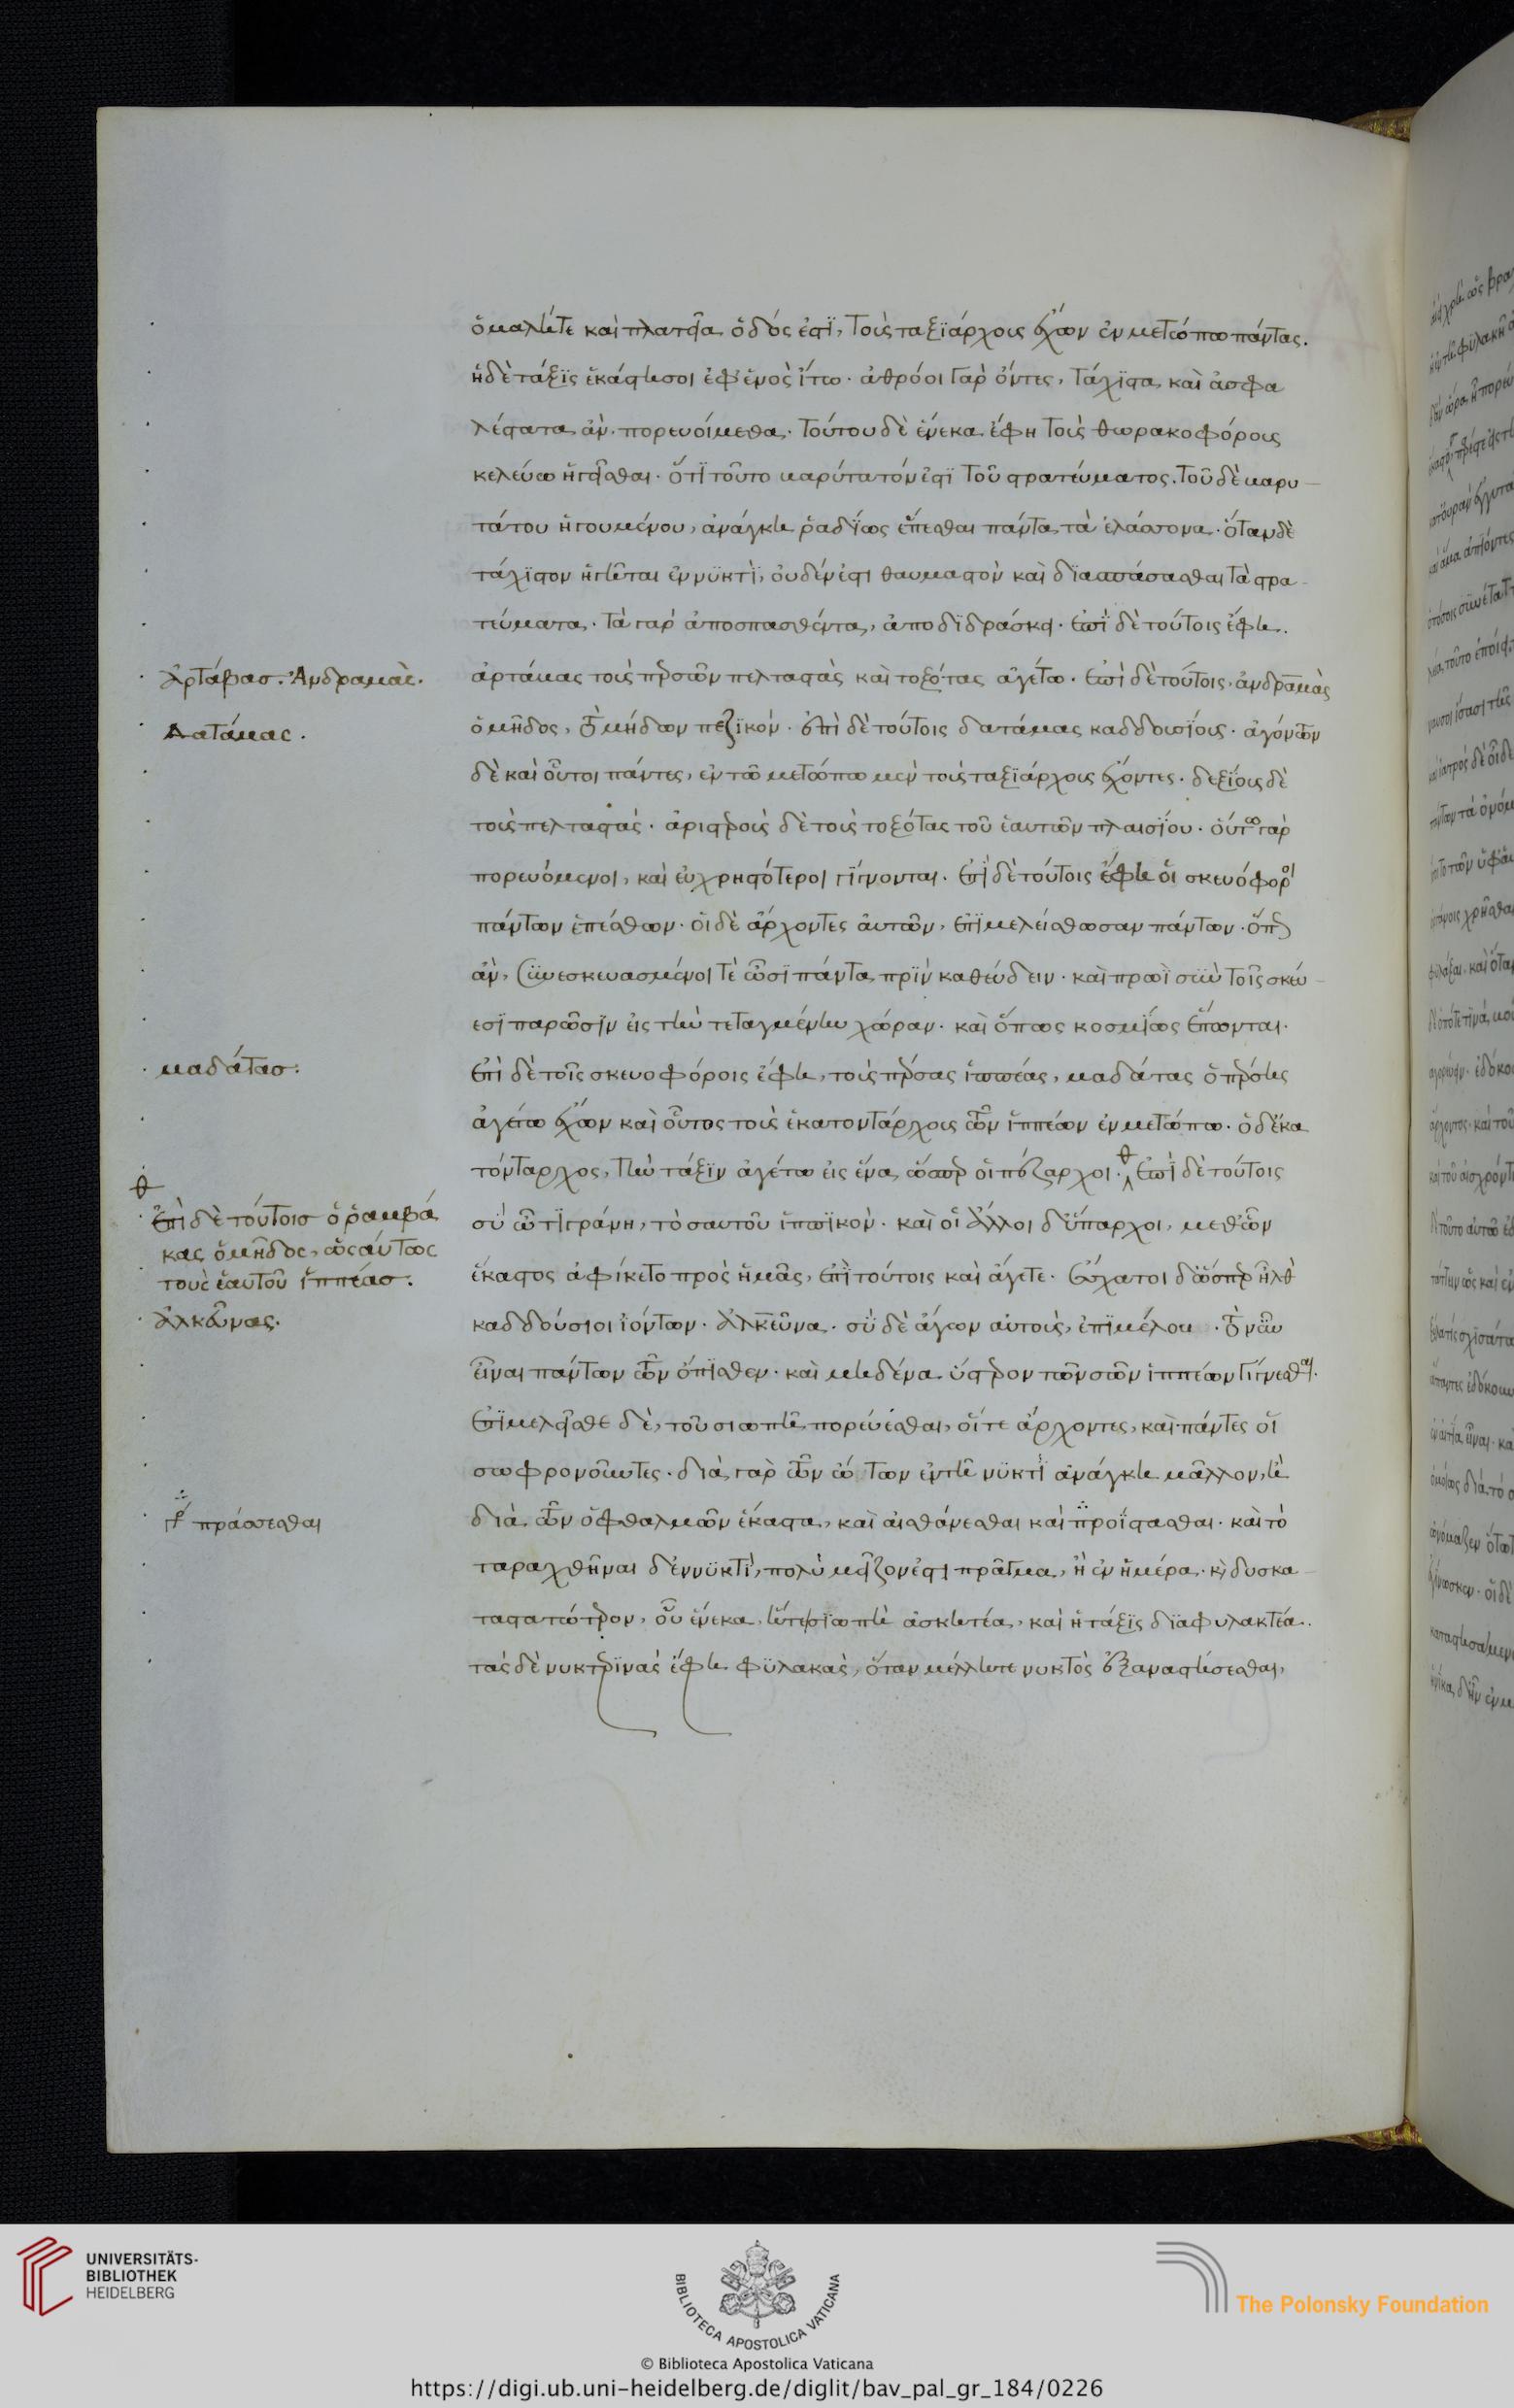 ὁμαλήτε καὶ πλατεῖα ὁδός ἐστϊ, τοὺς ταξϊάρχους ἔχων ἐν μετώπω πάντας.
ἡ δὲ τάξϊς ἑκάστη σοι ἐφ' ἑνὸς ἴτω· ἀθρόοι γὰρ ὄντες, τάχϊστα καὶ ἀσφα
λέστατα ἂν πορευοίμεθα· τούτου δὲ ἕνεκα ἔφη τοὺς θωρακοφόρους
κελεύω ἡγεῖσθαι· ὅτϊ τοῦτο βαρύτατόν ἐστϊ τοῦ στρατεύματος. τοῦ δὲ βαρυ-
τάτου ἡγουμένου, ἀνάγκη ῥαδΐως ἕπεσθαι πάντα τὰ ἐλάσσονα· ὅταν δὲ
τάχϊστον ἡγῆται ἐν νϋκτὶ, οὐδέν ἐστι θαυμαστὸν καὶ δϊασπάσασθαι τὰ στρα-
τεύματα· τὰ γὰρ ἀποσπασθέντα, ἀποδϊδράσκει· ἐπϊ δὲ τούτοις ἔφη.
Ἀρτάβασ. Ἀνδραμὰς. ἀρτάβας τοὺς περσῶν πελταστὰς καὶ τοξότας ἀγέτω· ἐπὶ δὲ τούτοις· ἀνδραμὰς
Δατάμας. ὁ μῆδος, τὸ μήδων πεζϊκόν· ἐπὶ δὲ τούτοις δατάμας καδδουσΐους· ἀγόντων
δὲ καὶ οὗτοι πάντες, ἐν τῶ μετώπω μὲν τοὺς ταξϊάρχους ἔχοντες· δεξϊοὺς δὲ
τοὺς πελταστάς· ἀριστεροὺς δὲ τοὺς τοξότας τοῦ ἑαυτῶν πλαισΐου· οὕτω γὰρ
πορευόμενοι, καὶ εὐχρηστότεροι γϊγνονται· ἐπὶ δὲ τούτοις ἔφη οἱ σκευόφοροι
πάντων ἑπέσθων· οἱ δὲ ἄρχοντες ἀυτῶν, ἐπϊμελείσθωσαν πάντων· ὅπως
ἂν, συνεσκευασμένοι τὲ ὦσϊ πάντα πρϊν καθεύδειν· καὶ πρωῒ σϋὺν τοῖς σκεύ-
εσϊ παρῶσϊν εἰς τὴν τεταγμένην χώραν· καὶ ὅπως κοσμΐως ἕπωνται·
μαδάτασ: ἐπὶ δὲ τοῖς σκευοφόροις ἔφη, τοὺς πέρσας ἱππέας, μαδάτας ὁ πέρσης
ἀγέτω ἔχων καὶ οὗτος τοὺς ἑκατοντάρχους τῶν ἱππέων ἐν μετώπω· ὁ δ' ἑκα
τόνταρχος, τὴν τάξϊν ἀγέτω εἰς ἕνα, ὥσπερ οἱ πέζαρχοι· ἐπϊ δὲ τούτοις
ἐπὶ δὲ τούτοισ ὁ ῥαμβά
κας ὁ μῆδος, ὡς αύτως
τους ἑαυτοῦ ἱππέασ.
σὺ ὦ τϊγράνη, τὸ σαυτοῦ ἱππϊκὸν· καὶ οἱ ἄλλοι δ' ὕπαρχοι, μεθ' ὧν
ἕκαστος ἀφίκετο πρὸς ἡμᾶς, ἐπϊ τούτοις καὶ ἄγετε· ἔσχατοι δ' ὥσπερ ἦλθον
Ἀλκεύνας. καδδούσιοι ἰόντων· ἀλκεῦνα· σὺ δὲ ἄγων αὐτοὺς, ἐπϊμέλου · τὸ νῦν
εἶναι πάντων τῶν ὄπϊσθεν· καὶ μηδένα ὕστερον τῶν σῶν ἱππέων γίγνεσθαι·
ἐπϊμελεῖσθε δὲ, τοῦ σιωπῆ πορεύεσθαι, οἵτε ἄρχοντες, καὶ πάντες οἱ
σωφρονοῦντες· διὰ γὰρ τῶν ὤτων ἐν τῆ νϋκτΐ ἀνάγκη μᾶλλον, ἢ
γρ πράσσεσθαι διὰ τῶν ὀφθαλμῶν ἕκαστα, καὶ αἰσθάνεσθαι καὶ προΐστασθαι· καὶ τὸ
ταραχθῆναι δ' ἐν νϋκτὶ, πολὺ μεῖζον ἐστι πρᾶγμα, ἢ ἐν ἡμέρα· κ δυσκα-
ταστατώτερον, οὗ ἕνεκα, ἥτε σϊωπὴ ἀσκητέα, καὶ ἡ τάξϊς δϊαφυλακτέα.
τὰς δὲ νυκτερϊνὰς ἔφη φϋλακὰς, ὅταν μέλλητε νυκτὸς ἐξαναστήσεσθαι,
UNIVERSITÄTS-
BIBLIOTHEK
HEIDELBERG
BIBLIOTECA APOSTOLICA VATICANA
The Polonsky Foundation
© Biblioteca Apostolica Vaticana
https://digi.ub.uni-heidelberg.de/diglit/bav_pal_gr_184/0226